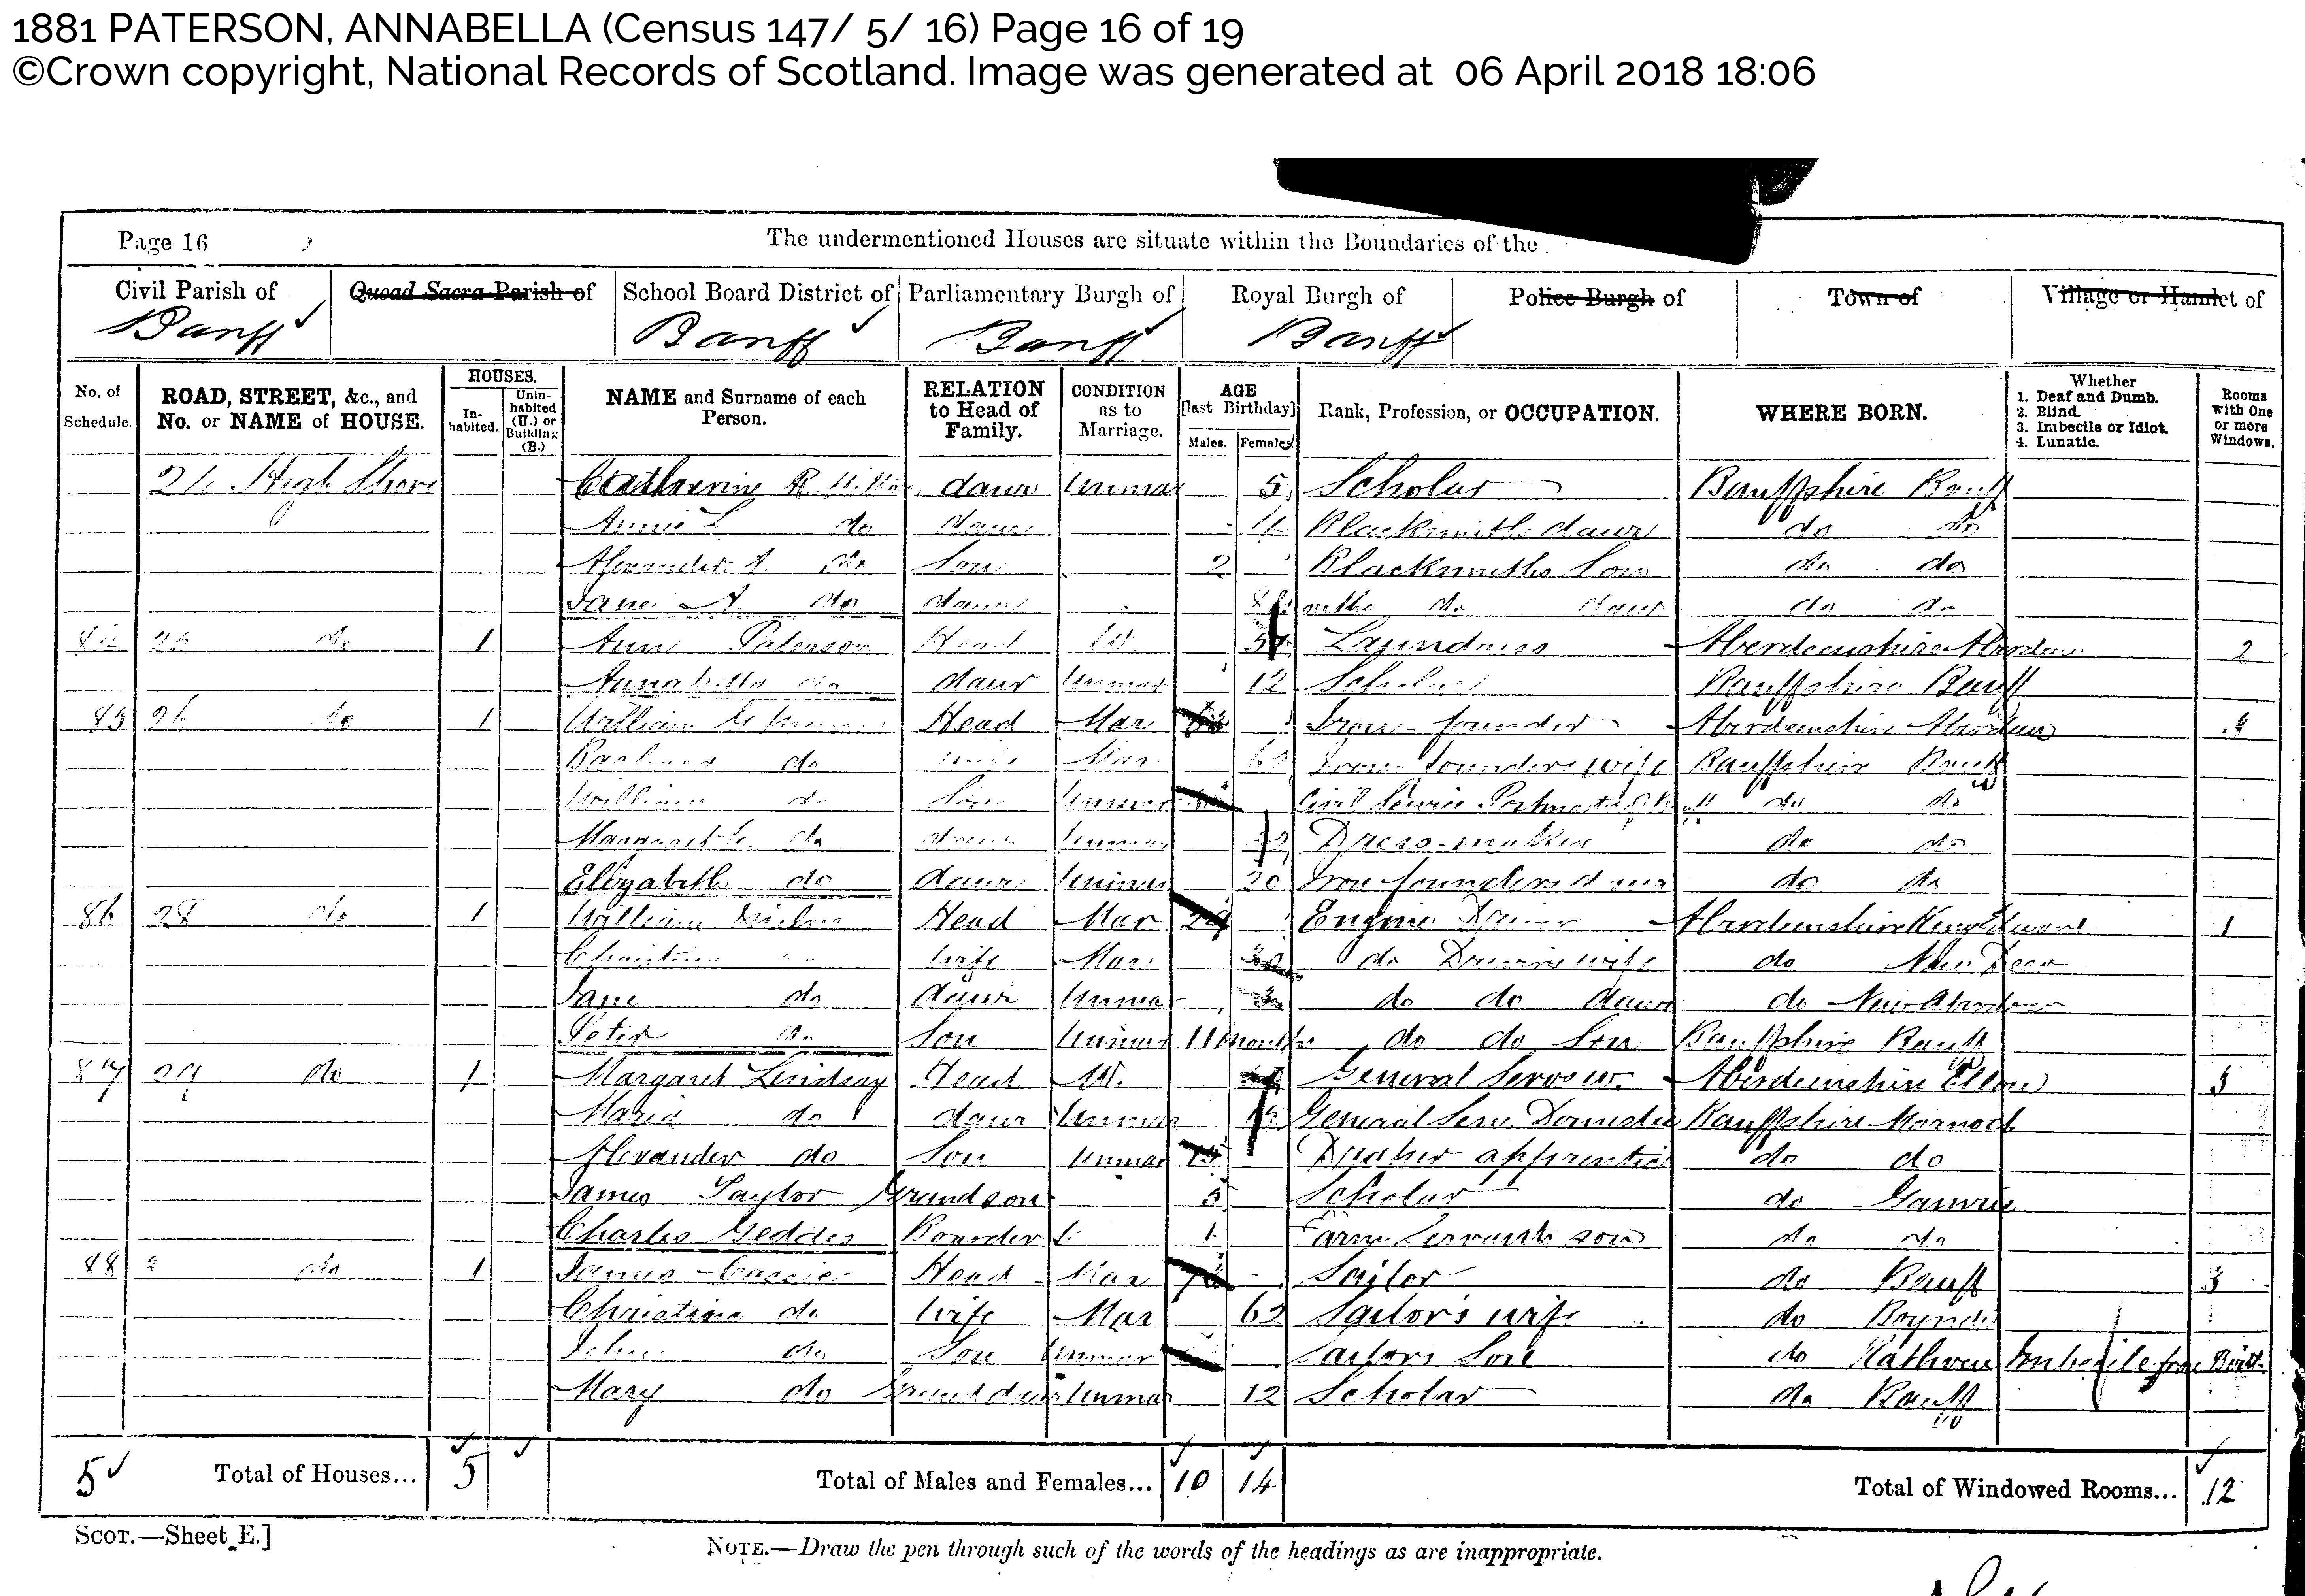 1881 PATERSON, ANNABELLA (Census 147/ 5/ 16) Page 16 of 19
©Crown copyright, National Records of Scotland. Image was generated at 06 April 2018 18:06
Page 16 The undermentioned Houses are situate within the Boundaries of the
Civil Parish of Quoad Sacra Parish of School Board District of Parliamentary Burgh of Royal Burgh of Police Burgh of Town of Village or Hamlet of
Banff Banff Banff Banff
No. of Schedule. ROAD, STREET, &c., and No. or NAME of HOUSE. HOUSES. Inhabited. Uninhabited (U.) or Building (B.) NAME and Surname of each Person. RELATION to Head of Family. CONDITION as to Marriage. AGE [last Birthday] Males. Females. Rank, Profession, or OCCUPATION. WHERE BORN. Whether 1. Deaf and Dumb. 2. Blind. 3. Imbecile or Idiot. 4. Lunatic. Rooms with One or more Windows.
High Shore Catherine R. daur Unmar 5 Scholar Banffshire Banff
Annie L do daur Blacksmiths daur do do
Alexander A. do Son 2 Blacksmiths Son do do
Jane A do daur do daur do do
do 1 Ann Paterson Head W. Laundress Aberdeenshire Aberdeen 2
Annabella do daur Unmar 12 Scholar Banffshire Banff
85 26 do 1 William Head Mar Iron-founder Aberdeenshire Aberdeen
do wife Mar Iron founders wife Banffshire Banff
William do Son Unmar Civil Service do do
Margaret do daur Unmar Dress-maker do do
Elizabeth do daur Unmar 20 Iron founders daur do do
86 28 do 1 William Milne Head Mar 29 Engine Driver Aberdeenshire King Edward 1
Christina wife Mar do Drivers wife do New Deer
Jane do daur Unmar 3 do do daur do New Aberdour
Peter do Son Unmar 11 months do do Son Banffshire Banff
87 29 do 1 Margaret Lindsay Head W. General Servant Aberdeenshire Ellon 3
Maria do daur Unmar General Serv. Domestic Banffshire Marnoch
Alexander do Son Unmar 15 Draper apprentice do do
James Taylor Grandson 5 Scholar do Gamrie
Charles Geddes Boarder 1 Farm Servants son do do
88 do 1 James Cassie Head Mar Saylor do Banff 3
Christina do wife Mar 62 Saylor's wife do Boyndie
John do Son Unmar Saylors Son do Rathven Imbecile from Birth
Mary do Grand daur Unmar 12 Scholar do Banff
5 Total of Houses... 5 Total of Males and Females... 10 14 Total of Windowed Rooms... 12
SCOT.—Sheet E.] NOTE.—Draw the pen through such of the words of the headings as are inappropriate.